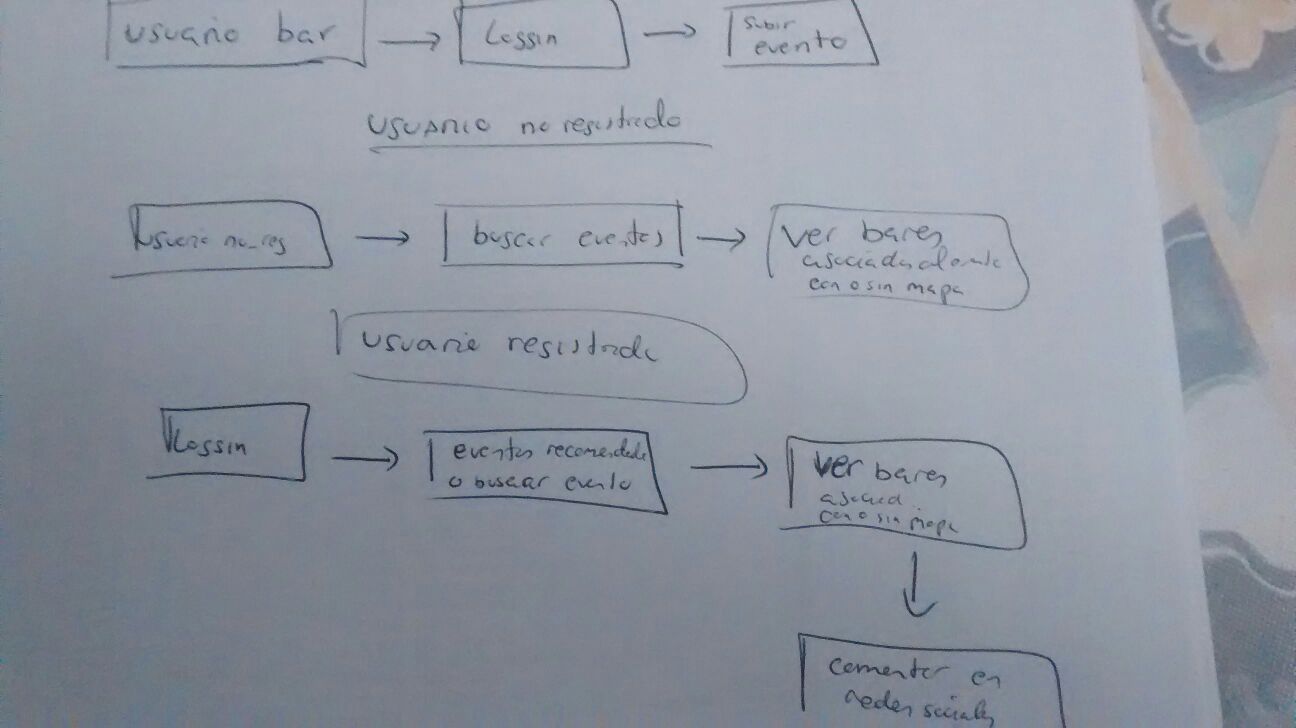 usuario bar
Loggin
subir
evento
USUARIO no registrado
Usuario no_reg
buscar eventos
ver bares
asociados al evento
con o sin mapa
usuario registrado
Loggin
eventos recomendados
o buscar evento
ver bares
asociad.
con o sin mapa
comentar en
redes sociales